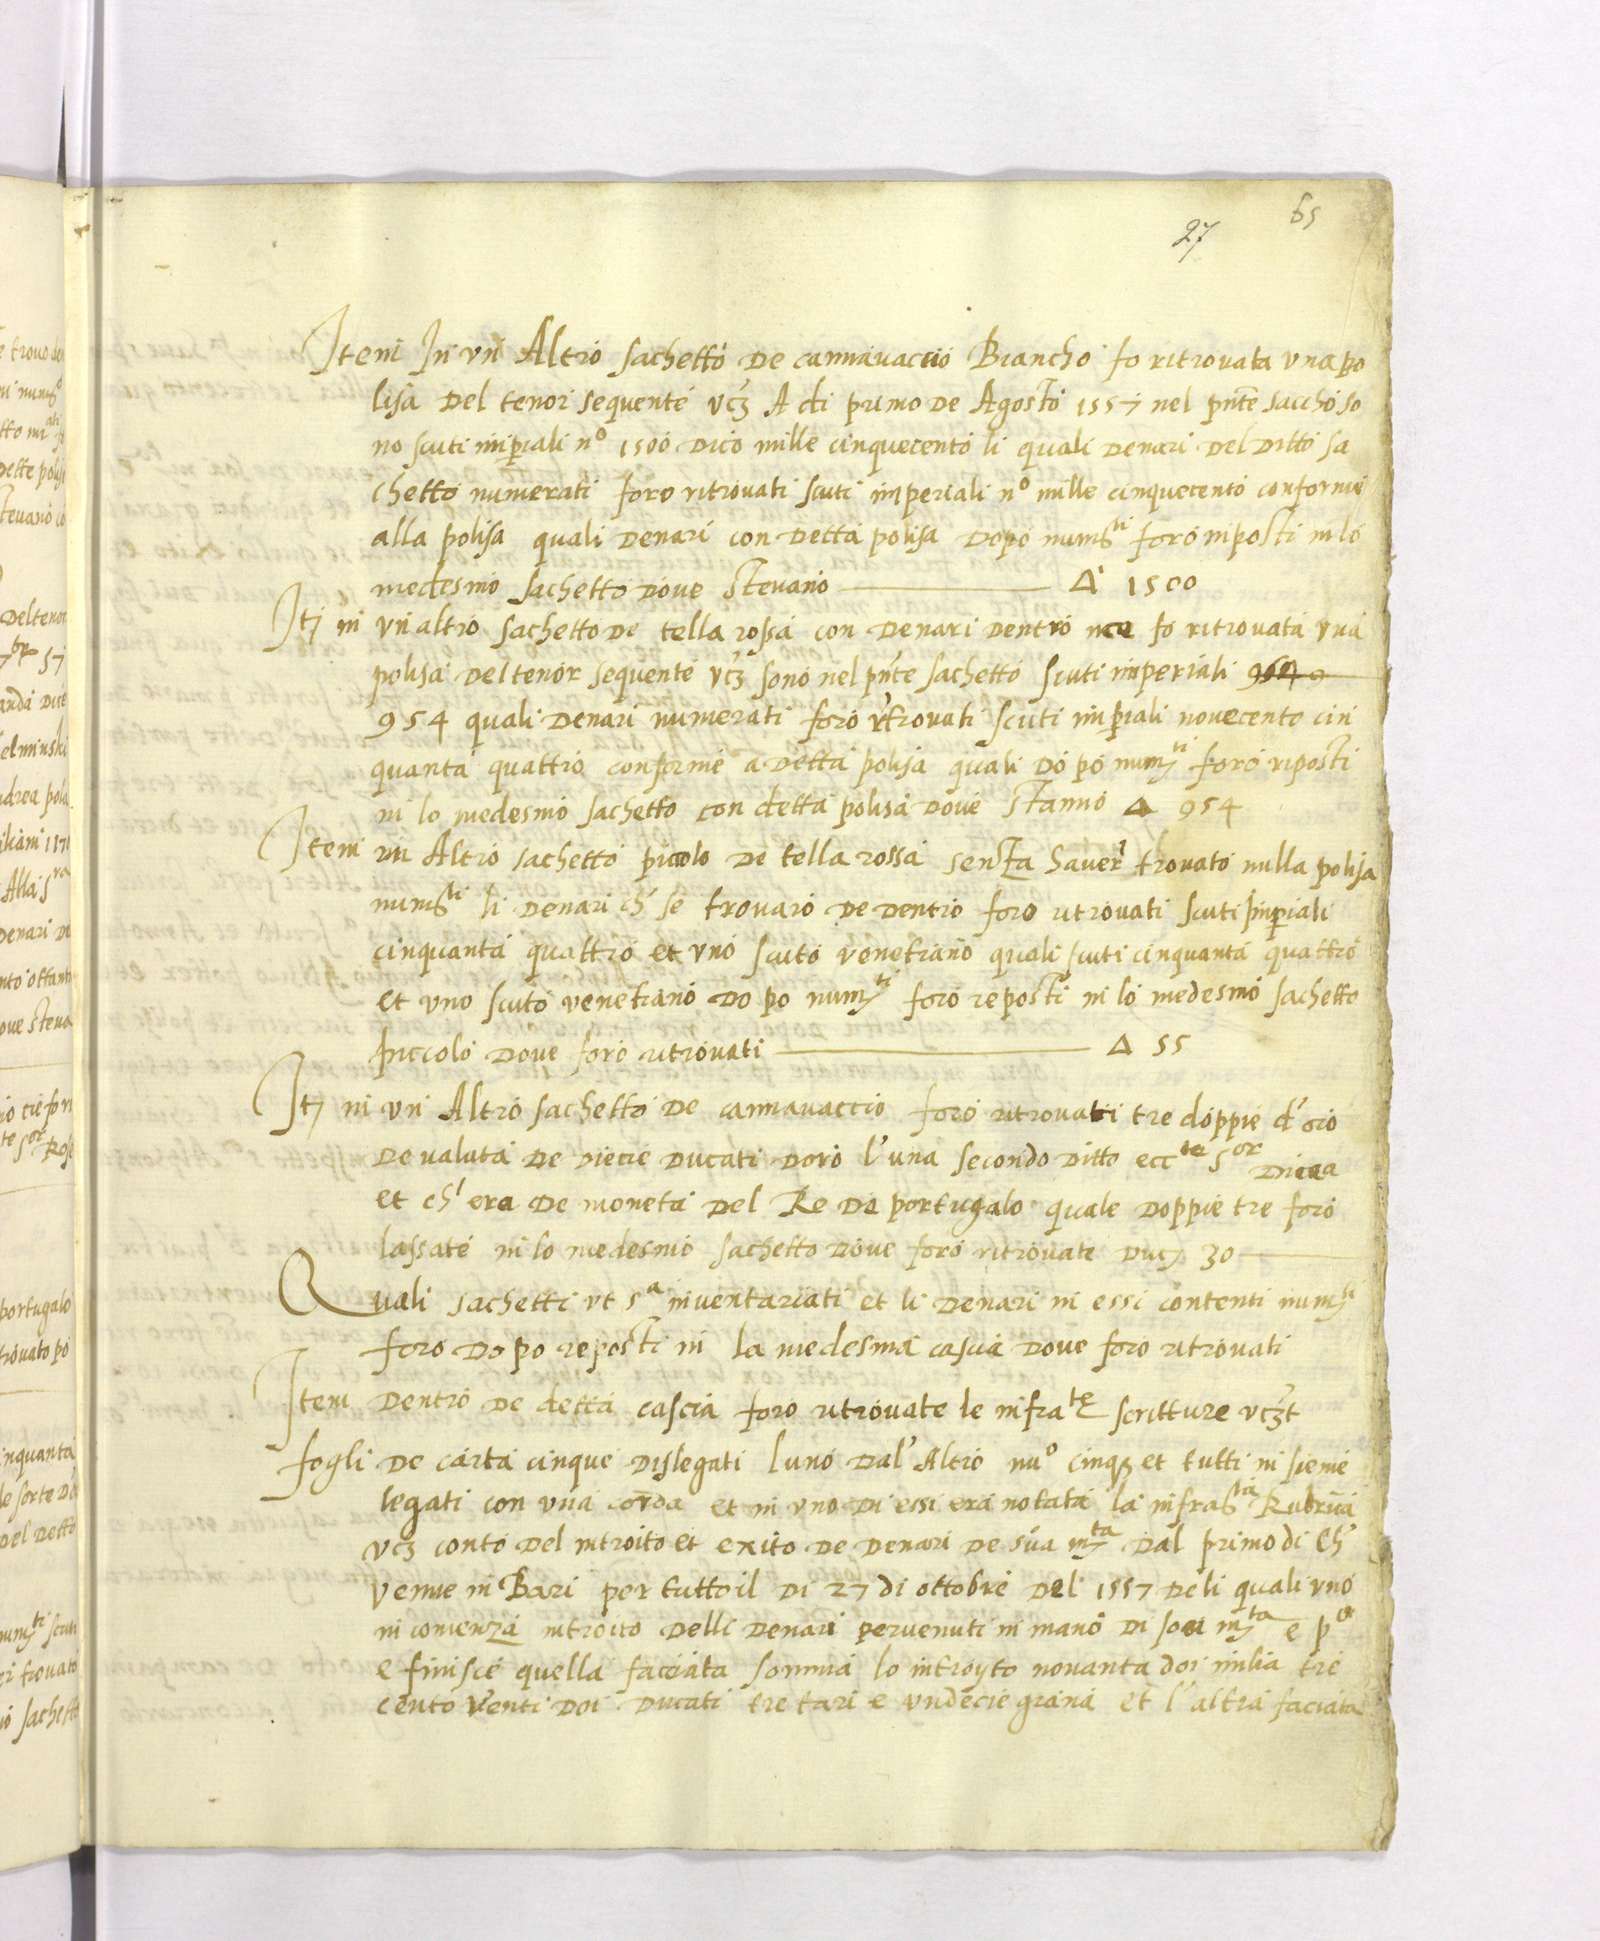 65
27
Item In un Altro sachetto de cannavaccio Biancho fo ritrovata una po
lisa del tenor sequente vcz A di primo de Agosto 1557 nel pnte saccho so
no scuti impiali no 1500 dico mille cinquecento li quali denari del ditto sa
chetto numerati foro ritrovati scuti imperiali no mille cinquecento conforme
alla polisa quali denari con detta polisa dopo numti foro riposti in lo
medesmo sachetto dove stevano Δ 1500
Itz in un altro sachetto de tella rossa con denari dentro nce fo ritrovata una
polisa del tenor sequente vcz sono nel pnte sachetto scuti imperiali
954 quali denari numerati foro rtrovati scuti impiali novecento cin
quanta quattro conforme a detta polisa quali dopo numti foro riposti
in lo medesmo sachetto con detta polisa dove stanno Δ 954
Item in Altro sachetto picolo de tella rossa senza haver trovato nulla polisa
numti li denari ch' se trovaro de dentro foro ritrovati scuti impiali
cinquanta quattro et uno scuto venetiano quali scuti cinquanta quattro
et uno scuto venetiano dopo numti foro reposti in lo medesmo sachetto
piccolo dove foro ritrovati Δ 55
Itz in un Altro sachetto de cannavaccio foro ritrovati tre doppie d'oro
de valuta de diecie ducati doro l'una secondo ditto eccte sor dicea
et ch' era de moneta del Re de portugalo quale doppie tre foro
lassate in lo medesmo sachetto dove foro ritrovate duc 30
Quali sachetti ut sa inventariati et li denari in essi contenti numti
foro dopo reposti in la medesma cascia dove foro ritrovati
Item dentro de detta cascia foro ritrovate le infrate scritture vczt
fogli de carta cinque dislegati luno dal' Altro nuo cinq et tutti insieme
legati con una corda et in uno di essi era notata la infrasta Rubrica
vcz conto del introito et exito de denari de sua mta dal primo di Ch'
venne in Bari per tutto il di 27 di ottobre del 1557 deli quali uno
incomenza introito delli denari pervenuti in mano di soa mta e po
e finisce quella facciata somma lo introyto novanta doi milia tre
cento venti doi ducati tre tari e undecie grana et l'altra faciata